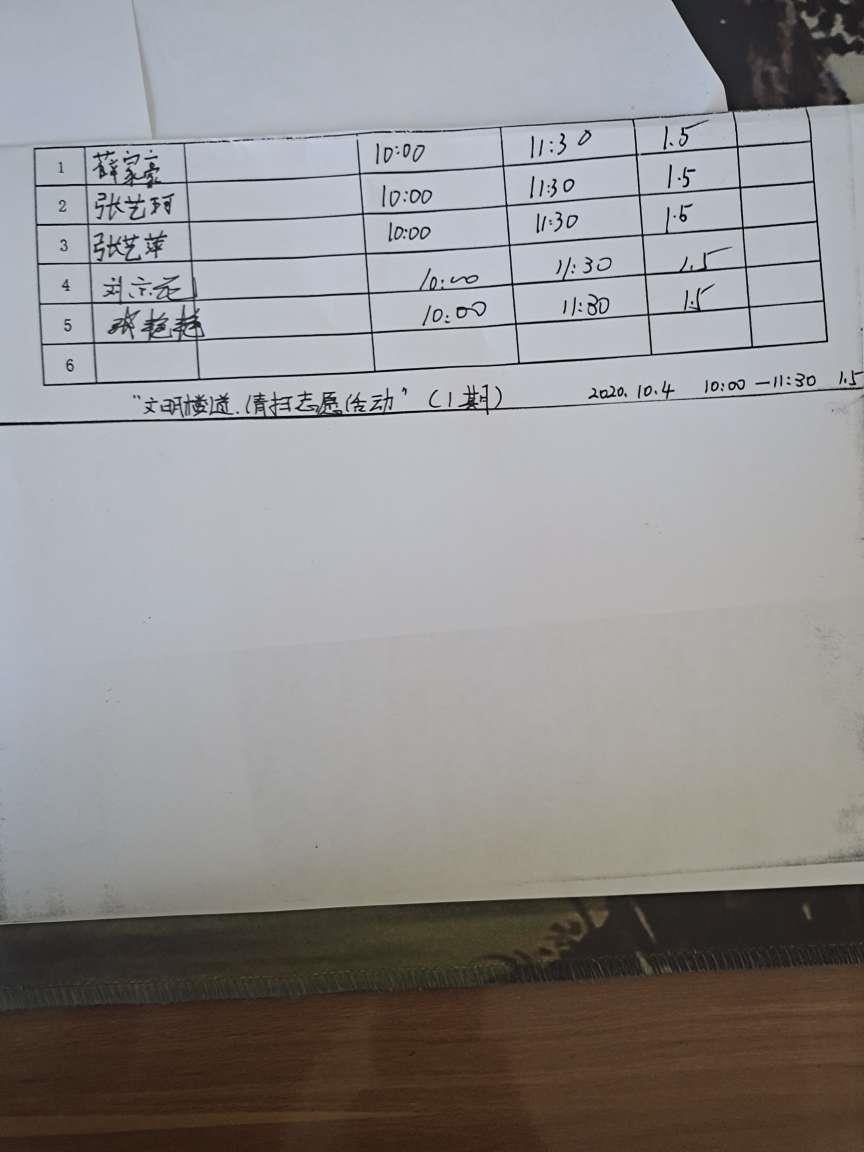 1 薛家豪 10:00 11:30 1.5
2 张艺珂 10:00 11:30 1.5
3 张艺萍 10:00 11:30 1.5
4 10:00 11:30 1.5
5 张艳艳 10:00 11:30 1.5
6
“文明楼道.清扫志愿活动”(1期) 2020.10.4 10:00—11:30 1.5